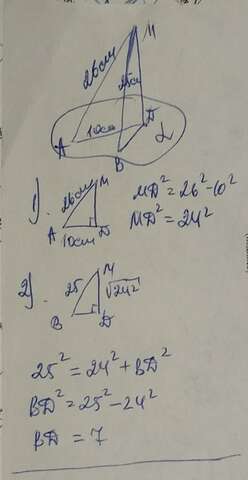 M
26см
25см
10см
A
D
B
α
1).
26см
M
A
D
10см
MD² = 26² - 10²
MD² = 24²
2).
M
25
√24²
B
D
25² = 24² + BD²
BD² = 25² - 24²
BD = 7